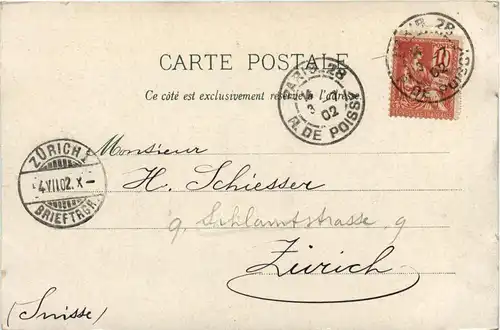 CARTE POSTALE
Ce côté est exclusivement réservé à l'adresse.
PARIS. 28
R. DE POISSY
02
PARIS. 28
02
R. DE POISSY
10
ZÜRICH 1
4.VII.02. X-
BRIEFTRGR.
Monsieur
H. Schiesser
9, Schlamtstrasse, 9
Zürich
(Suisse)